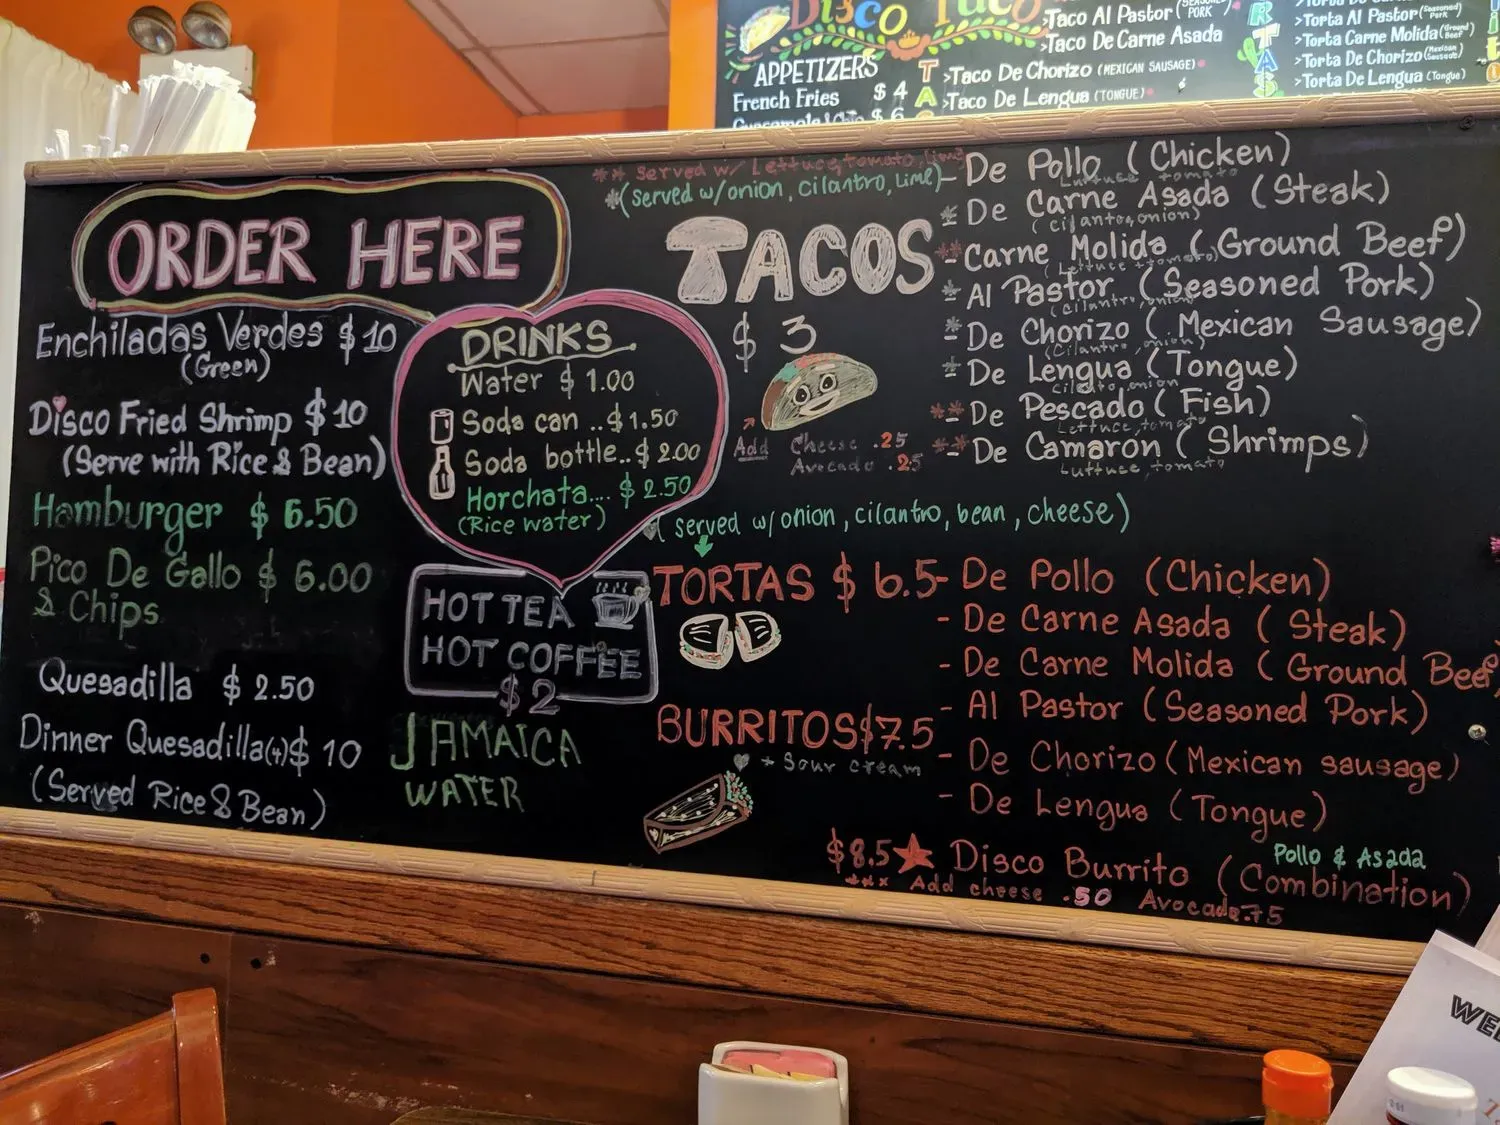 Disco Taco
APPETIZERS
French Fries $ 4
$ 6
TAC
>Taco Al Pastor (SEASONED PORK)
>Taco De Carne Asada
>Taco De Chorizo (MEXICAN SAUSAGE)
>Taco De Lengua (TONGUE)
RTAS
>Torta Al Pastor (Seasoned Pork)
>Torta Carne Molida (Ground Beef)
>Torta De Chorizo (Mexican Sausage)
>Torta De Lengua (Tongue)
ORDER HERE
Enchiladas Verdes $ 10
(Green)
Disco Fried Shrimp $ 10
(Serve with Rice & Bean)
Hamburger $ 6.50
Pico De Gallo $ 6.00
& Chips
Quesadilla $ 2.50
Dinner Quesadilla(4) $ 10
(Served Rice & Bean)
DRINKS
Water $ 1.00
Soda can ..$ 1.50
Soda bottle..$ 2.00
Horchata.... $ 2.50
(Rice water)
HOT TEA
HOT COFFEE
$ 2
JAMAICA
WATER
** Served w/ Lettuce, tomato, lime
*(served w/onion, cilantro, Lime)
TACOS
$ 3
Add Cheese .25
Avocado .25
- De Pollo (Chicken)
Luttuce tomato
* De Carne Asada (Steak)
(cilantro, onion)
** - Carne Molida (Ground Beef)
(Lettuce + tomato)
* - Al Pastor (Seasoned Pork)
(cilantro, onion)
* - De Chorizo (Mexican Sausage)
(Cilantro, onion)
* - De Lengua (Tongue)
cilantro, onion
** - De Pescado (Fish)
Lettuce, tomato
** - De Camarón (Shrimps)
Luttuce, tomato
(served w/onion, cilantro, bean, cheese)
TORTAS $ 6.5
BURRITOS $7.5
+ Sour cream
- De Pollo (Chicken)
- De Carne Asada (Steak)
- De Carne Molida (Ground Beef)
- Al Pastor (Seasoned Pork)
- De Chorizo (Mexican sausage)
- De Lengua (Tongue)
Pollo & Asada
$8.5 ★ Disco Burrito (Combination)
*** Add cheese .50 Avocado .75